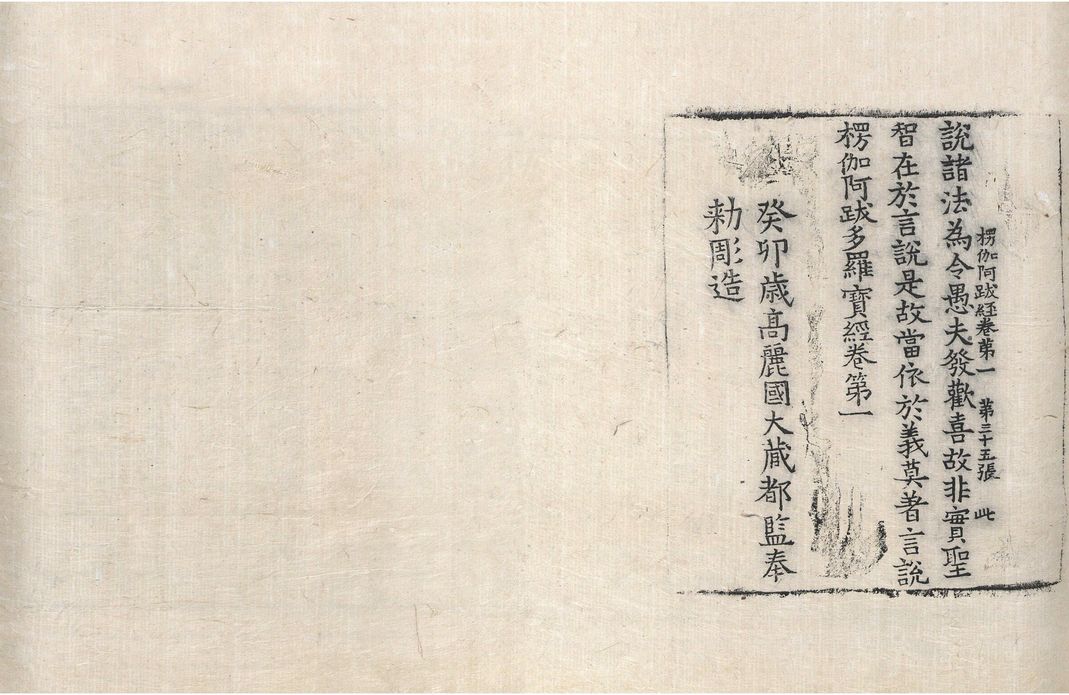 楞伽阿跋經卷第一 第三十五張 此
說諸法為令愚夫發歡喜故非實聖
智在於言說是故當依於義莫著言說
楞伽阿跋多羅寶經卷第一
癸卯歲高麗國大藏都監奉
勅彫造